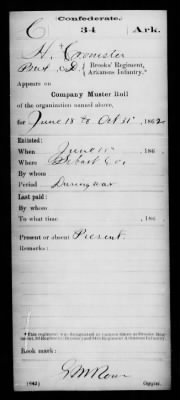 Confederate.
C 34 Ark.
H. Cronister
Pvt, D. { Brooks' Regiment,
Arkansas Infantry.*
Appears on
Company Muster Roll
of the organization named above,
for June 18 to Oct 31, 1862.
Enlisted:
When June 186 .
Where Co.
By whom
Period During War
Last paid:
By whom
To what time , 186 .
Present or absent Present
Remarks:
Book mark:
(642) Copyist.